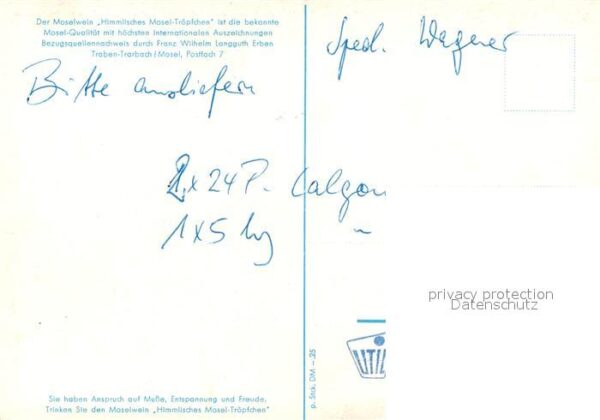 Der Moselwein „Himmlisches Mosel-Tröpfchen" ist die bekannte
Mosel-Qualität mit höchsten internationalen Auszeichnungen
Bezugsquellennachweis durch Franz Wilhelm Langguth Erben
Traben-Trarbach/Mosel, Postfach 7
Sped. Wegner
Bitte ausliefern
2 x 24 P. Calgon
1 x 5 kg "
privacy protection
Datenschutz
UTIL
p. Stck. DM -.25
Sie haben Anspruch auf Muße, Entspannung und Freude.
Trinken Sie den Moselwein „Himmlisches Mosel-Tröpfchen"